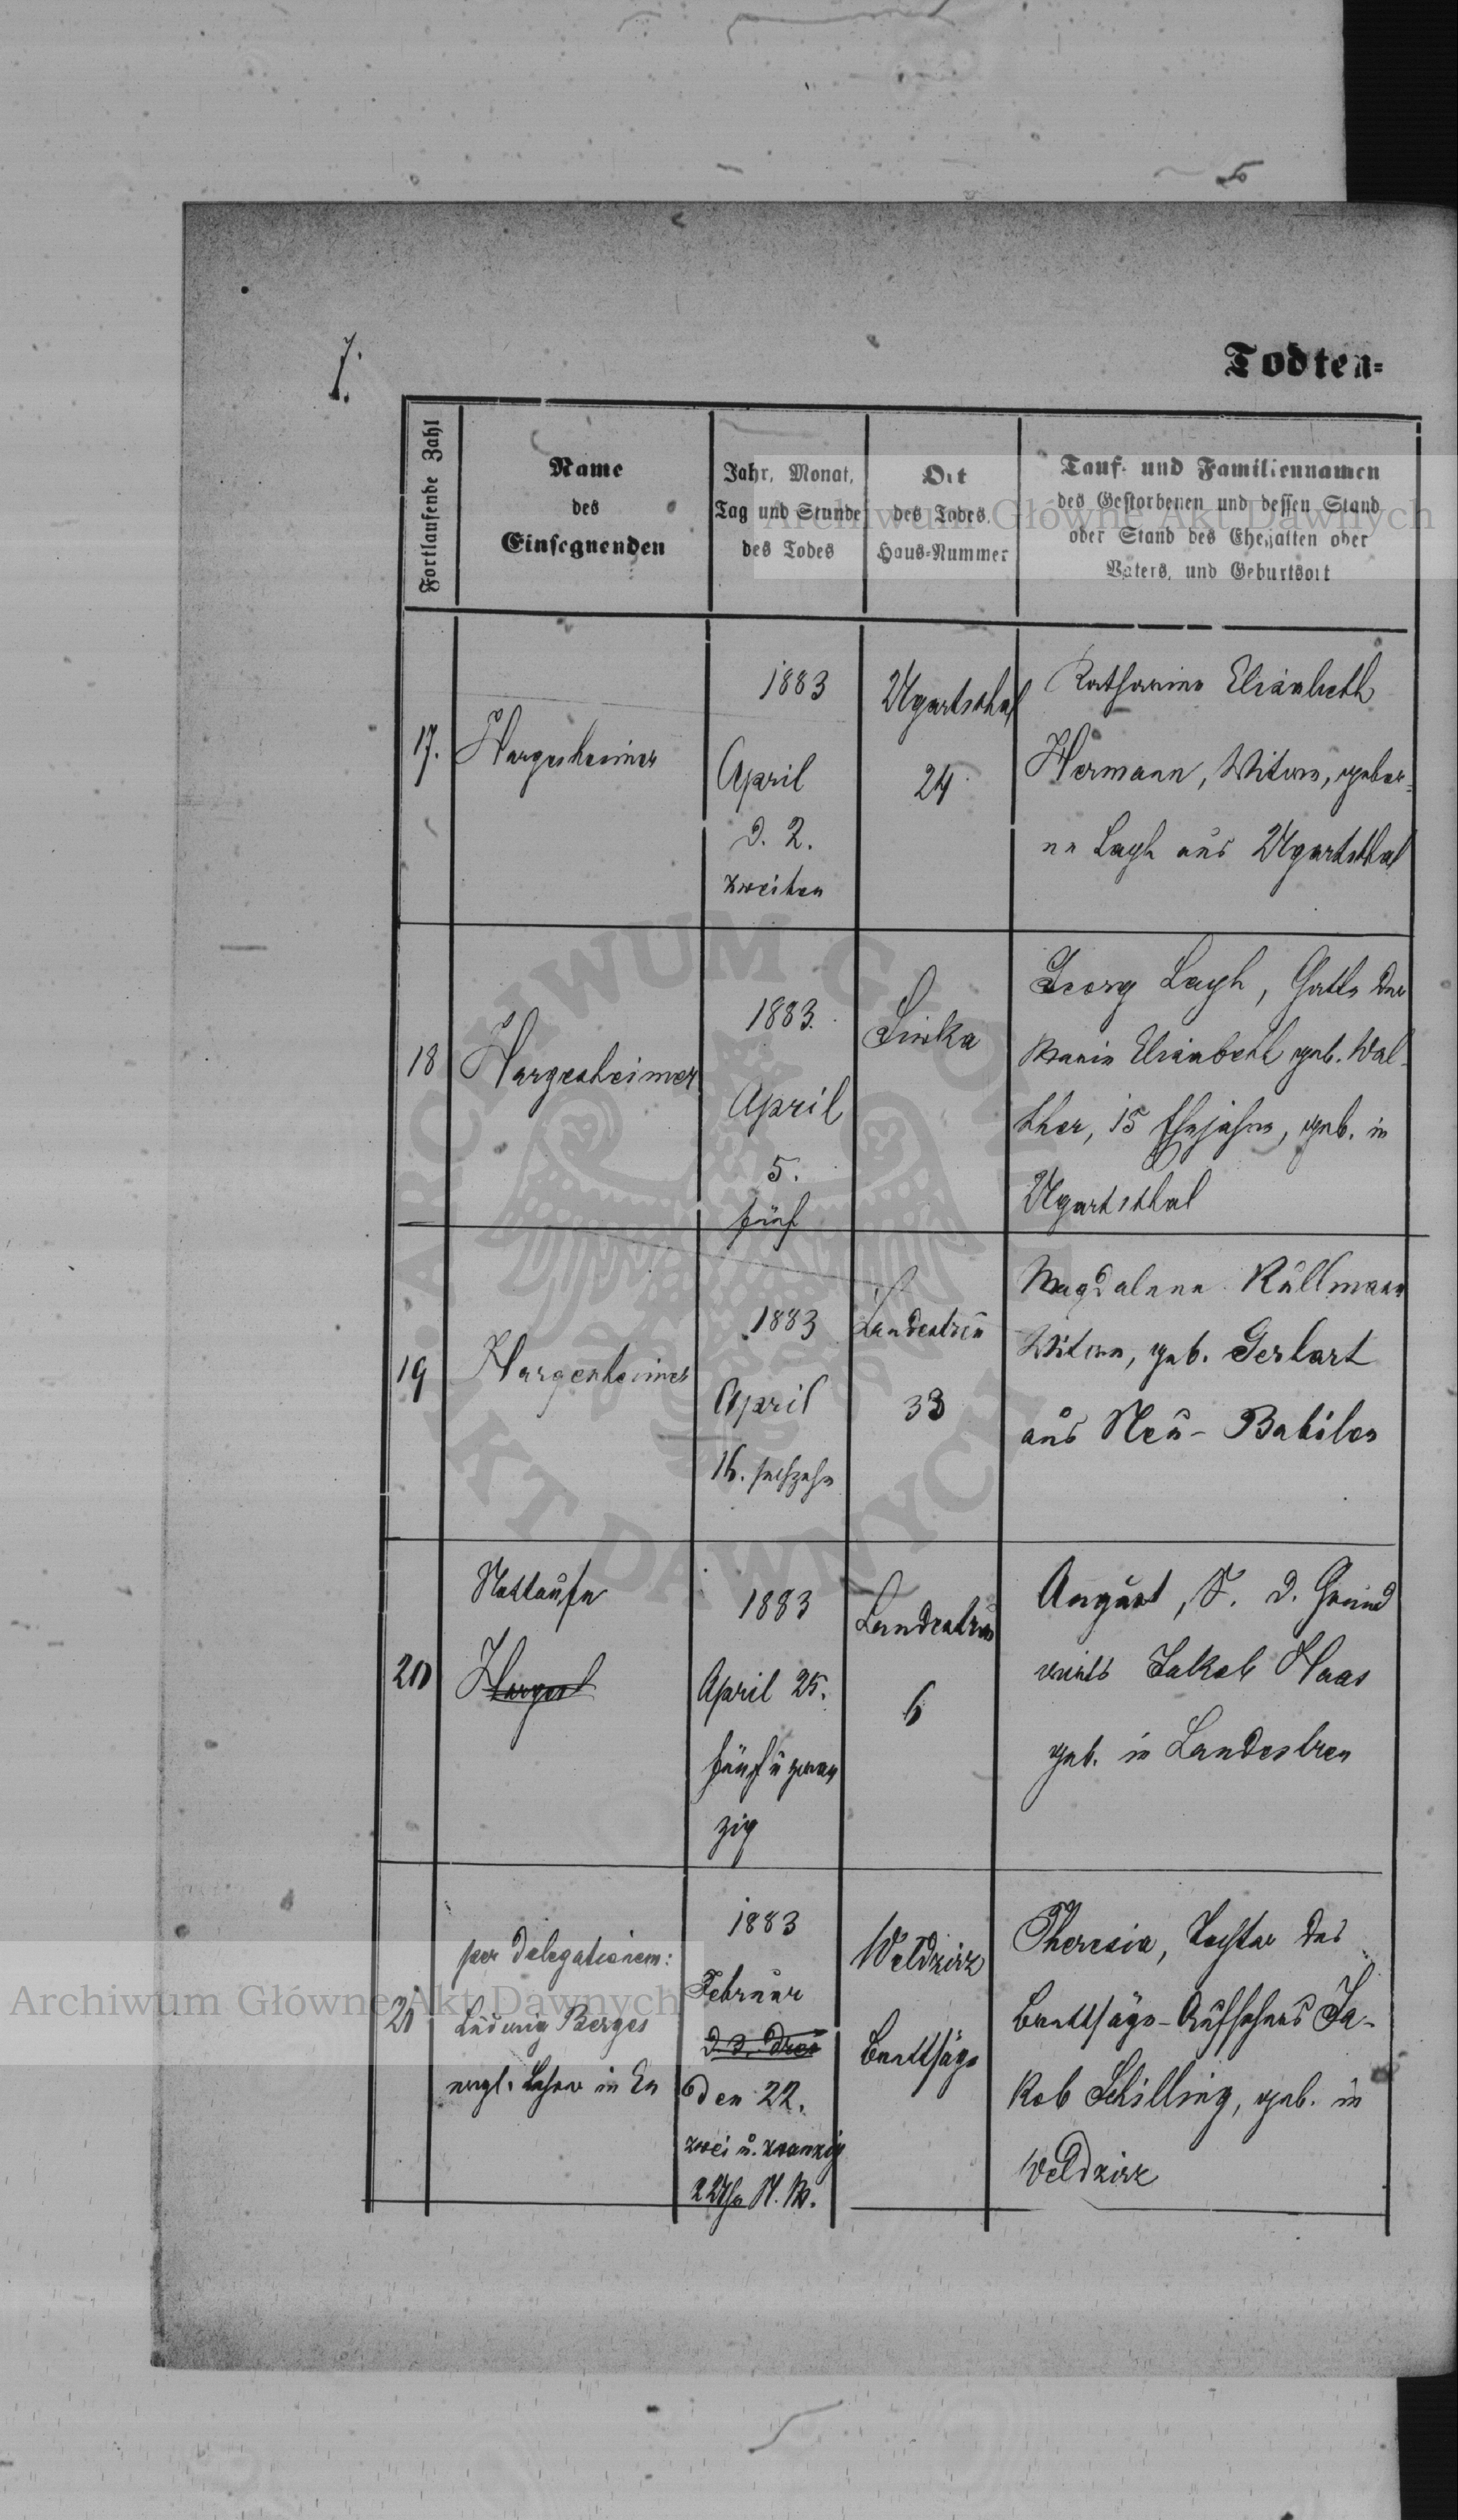 7.
Todten=
Fortlaufende Zahl
Name
des
Einsegnenden
Jahr, Monat,
Tag und Stunde
des Todes
Ort
des Todes.
Haus-Nummer
Tauf- und Familiennamen
des Gestorbenen und dessen Stand
oder Stand des Ehegatten oder
Vaters, und Geburtsort
17.
Hargesheimer
1883
April
d. 2.
zweiten
Ugartsthal
24
Katharina Elisabeth
Hermann, Witwe, gebor-
ne Layh aus Ugartsthal
18
Hargesheimer
1883.
April
5.
fünf
Siwka
Georg Layh, Gatte der
Maria Elisabeth geb. Wal-
ther, 15 Ehejahre, geb. in
Ugartsthal
19
Hargesheimer
1883
April
16. sechzehn
Landestreu
33
Magdalena Kullmann
Witwe, geb. Gerhart
aus Neu-Babilon
20
Nottaufe
Hargesh
1883
April 25.
fünf u zwan
zig
Landestreu
6
August, S. d. Grund
wirts Jakob Haas
geb. in Landestreu
21
per delegationem:
Ludwig Berges
evgl. Lehrer in
1883
Februar
d. 3. drei
den 22.
zwei u. zwanzig
2 Uhr N. M.
Weldzirz
Brettsäge
Theresia, Tochter des
Brettsäge-Aufsehers Ja-
kob Schilling, geb. in
Weldzirz
Archiwum Główne Akt Dawnych
ARCHIWUM GŁÓWNE
AKT DAWNYCH
Archiwum Główne Akt Dawnych